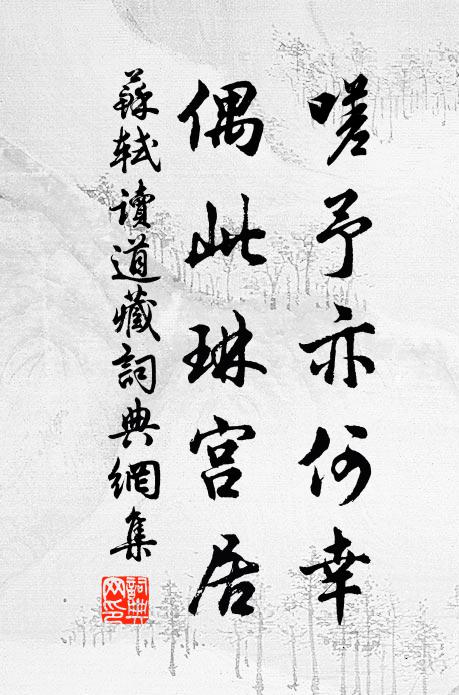 嗟予亦何幸
偶此琳宫居
蘇軾讀道藏詞典網集
詞典網印